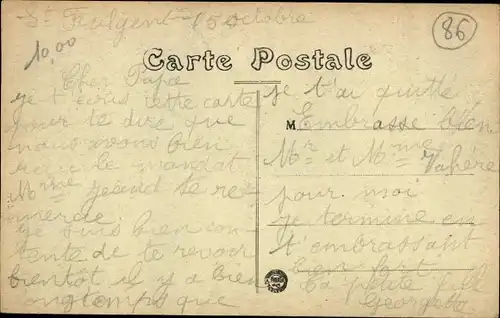 St Fulgent 15 octobre
10,00
86
Carte Postale
Cher Papa
je t'écris cette carte
pour te dire que
nous avons bien
reçu le mandat
Mme te re
mercie
je suis bien con
tente de te revoir
bientôt il y a bien
longtemps que
je t'ai quitté
M Embrasse bien
Mr et Mme
pour moi
je termine en
t'embrassant
bien fort
Ta petite fille
Georgette